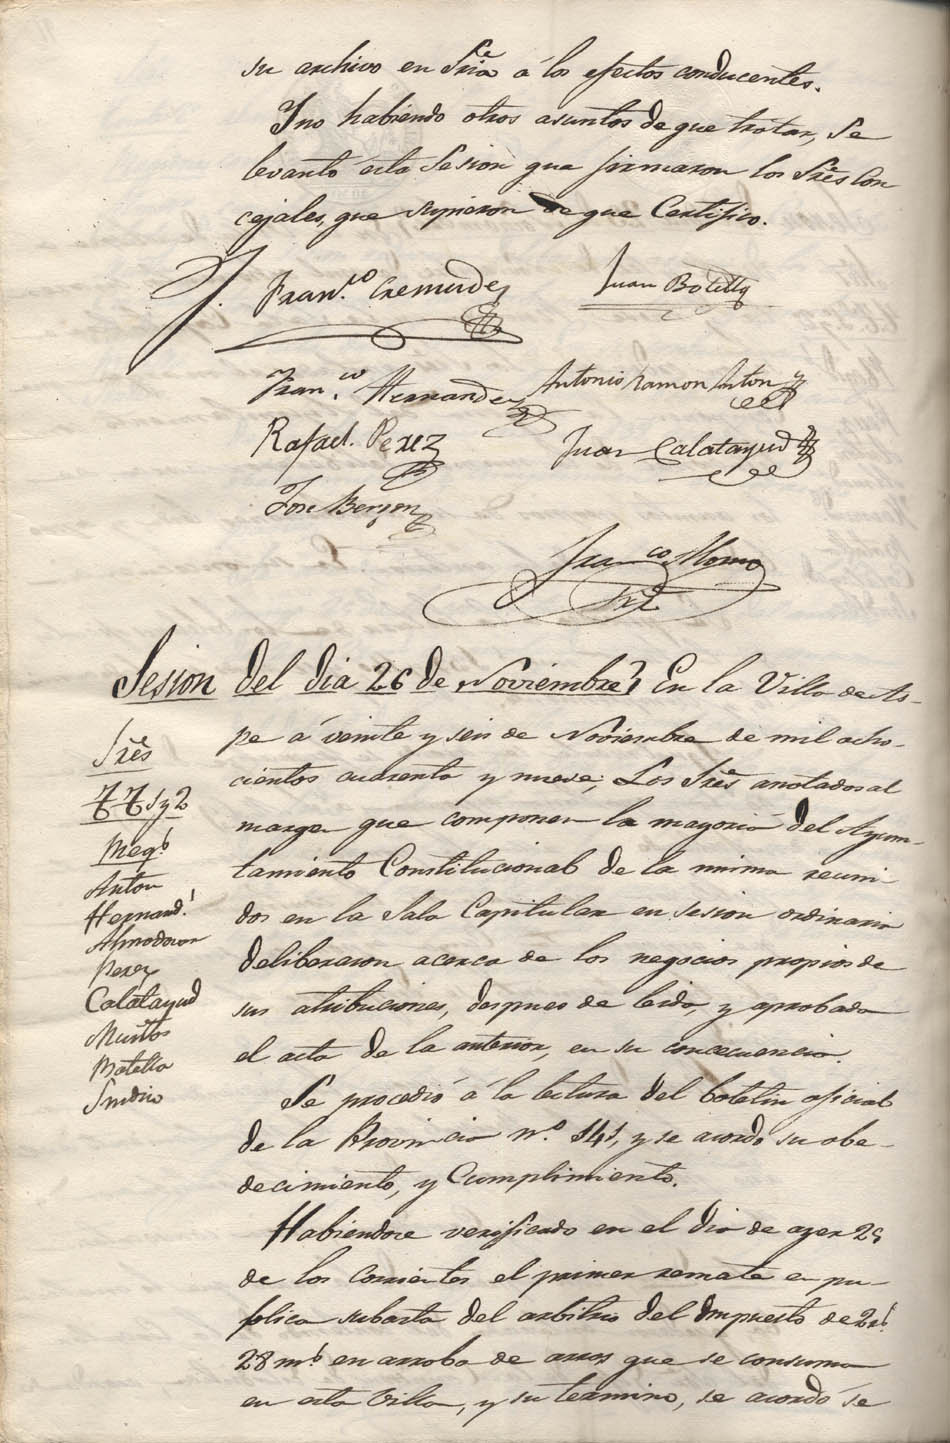 su archivo en Sria á los efectos conducentes.
Y no habiendo otros asuntos de que tratar, se
levantó esta Sesion que firmaron los Sres Con
cejales, que supieron de que Certifico.
Franco Cremades
Juan Botella
Franco Hernandez
Antonio Ramon Anton
Rafael Perez
Juan Calatayud
Jose Berzen
Franco Alonso
Srio
Sesion del dia 26 de Noviembre
En la Villa de As-
pe á veinte y seis de Noviembre de mil ocho-
cientos cuarenta y nueve; Los Sres anotados al
margen que componen la mayoria del Ayun-
tamiento Constitucional de la misma reuni
dos en la Sala Capitular en sesion ordinaria
deliberaron acerca de los negocios propios de
sus atribuciones, despues de leida, y aprobada
el acta de la anterior, en su concecuencia.
Se procedió á la lectura del boletin oficial
de la Provincia no. 141, y se acordo su obe-
decimiento, y Cumplimiento.
Habiendose verificado en el dia de ayer 25
de los corrientes el primer remate en pu-
blica subasta del arbitrio del Impuesto de 2 rs.
28 ms en arroba de arros que se consuma
en esta Villa, y su termino, se acordó se
Sres
TT 1 y 2
Regs
Anton
Hernandz
Almodovar
Perez
Calatayud
Muñtos
Botella
Sindico